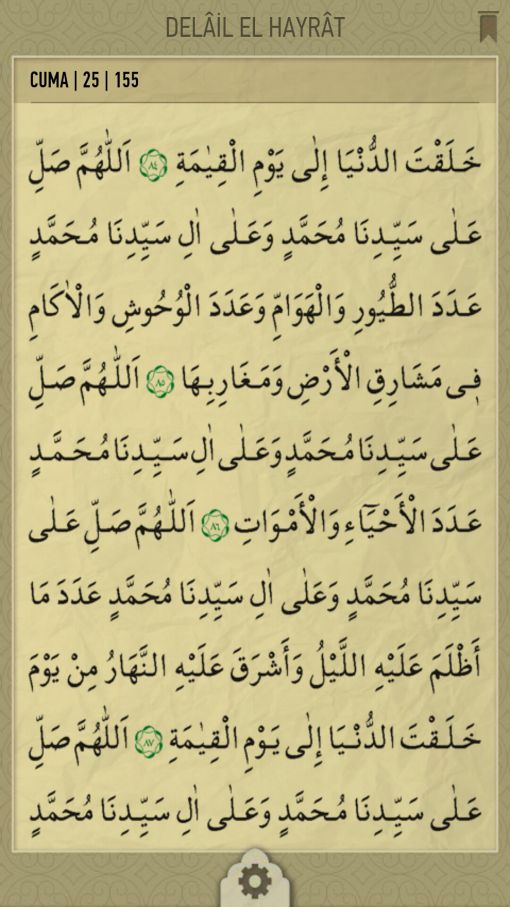 DELÂİL EL HAYRÂT
CUMA | 25 | 155
خَلَقْتَ الدُّنْيَا إِلٰى يَوْمِ الْقِيٰمَةِ ٨٤ اَللّٰهُمَّ صَلِّ
عَلٰى سَيِّدِنَا مُحَمَّدٍ وَعَلٰى اٰلِ سَيِّدِنَا مُحَمَّدٍ
عَدَدَ الطُّيُورِ وَالْهَوَامِّ وَعَدَدَ الْوُحُوشِ وَالْاٰكَامِ
فِى مَشَارِقِ الْأَرْضِ وَمَغَارِبِهَا ٨٥ اَللّٰهُمَّ صَلِّ
عَلٰى سَيِّدِنَا مُحَمَّدٍ وَعَلٰى اٰلِ سَيِّدِنَا مُحَمَّدٍ
عَدَدَ الْأَحْيَٓاءِ وَالْأَمْوَاتِ ٨٦ اَللّٰهُمَّ صَلِّ عَلٰى
سَيِّدِنَا مُحَمَّدٍ وَعَلٰى اٰلِ سَيِّدِنَا مُحَمَّدٍ عَدَدَ مَا
أَظْلَمَ عَلَيْهِ اللَّيْلُ وَأَشْرَقَ عَلَيْهِ النَّهَارُ مِنْ يَوْمَ
خَلَقْتَ الدُّنْيَا إِلٰى يَوْمِ الْقِيٰمَةِ ٨٧ اَللّٰهُمَّ صَلِّ
عَلٰى سَيِّدِنَا مُحَمَّدٍ وَعَلٰى اٰلِ سَيِّدِنَا مُحَمَّدٍ